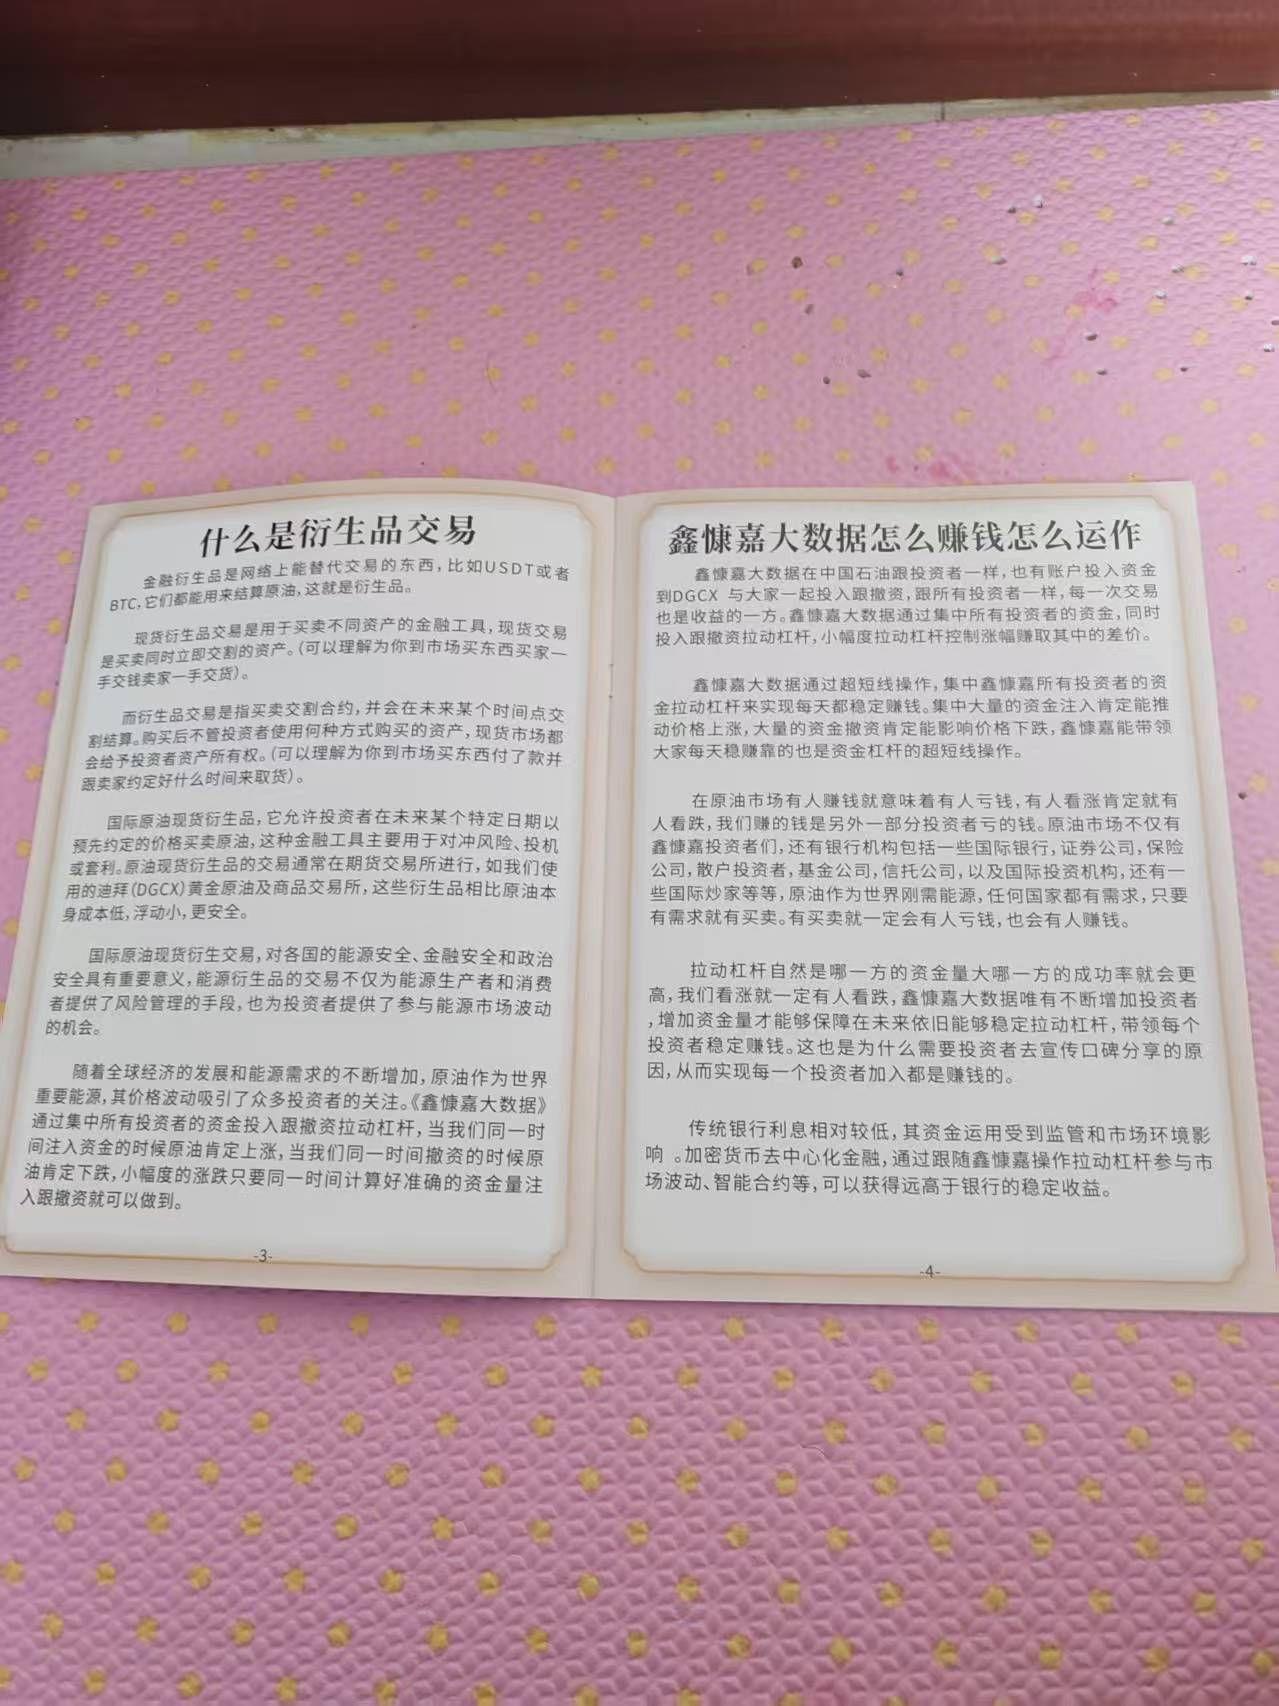 什么是衍生品交易
金融衍生品是网络上能替代交易的东西，比如USDT或者
BTC，它们都能用来结算原油，这就是衍生品。
现货衍生品交易是用于买卖不同资产的金融工具，现货交易
是买卖同时立即交割的资产。（可以理解为你到市场买东西买家一
手交钱卖家一手交货）。
而衍生品交易是指买卖交割合约，并会在未来某个时间点交
割结算。购买后不管投资者使用何种方式购买的资产，现货市场都
会给予投资者资产所有权。（可以理解为你到市场买东西付了款并
跟卖家约定好什么时间来取货）。
国际原油现货衍生品，它允许投资者在未来某个特定日期以
预先约定的价格买卖原油，这种金融工具主要用于对冲风险、投机
或套利。原油现货衍生品的交易通常在期货交易所进行，如我们使
用的迪拜（DGCX）黄金原油及商品交易所，这些衍生品相比原油本
身成本低，浮动小，更安全。
国际原油现货衍生交易，对各国的能源安全、金融安全和政治
安全具有重要意义，能源衍生品的交易不仅为能源生产者和消费
者提供了风险管理的手段，也为投资者提供了参与能源市场波动
的机会。
随着全球经济的发展和能源需求的不断增加，原油作为世界
重要能源，其价格波动吸引了众多投资者的关注。《鑫慷嘉大数据》
通过集中所有投资者的资金投入跟撤资拉动杠杆，当我们同一时
间注入资金的时候原油肯定上涨，当我们同一时间撤资的时候原
油肯定下跌，小幅度的涨跌只要同一时间计算好准确的资金量注
入跟撤资就可以做到。
-3-
鑫慷嘉大数据怎么赚钱怎么运作
鑫慷嘉大数据在中国石油跟投资者一样，也有账户投入资金
到DGCX 与大家一起投入跟撤资，跟所有投资者一样，每一次交易
也是收益的一方。鑫慷嘉大数据通过集中所有投资者的资金，同时
投入跟撤资拉动杠杆，小幅度拉动杠杆控制涨幅赚取其中的差价。
鑫慷嘉大数据通过超短线操作，集中鑫慷嘉所有投资者的资
金拉动杠杆来实现每天都稳定赚钱。集中大量的资金注入肯定能推
动价格上涨，大量的资金撤资肯定能影响价格下跌，鑫慷嘉能带领
大家每天稳赚靠的也是资金杠杆的超短线操作。
在原油市场有人赚钱就意味着有人亏钱，有人看涨肯定就有
人看跌，我们赚的钱是另外一部分投资者亏的钱。原油市场不仅有
鑫慷嘉投资者们，还有银行机构包括一些国际银行，证券公司，保险
公司，散户投资者，基金公司，信托公司，以及国际投资机构，还有一
些国际炒家等等，原油作为世界刚需能源，任何国家都有需求，只要
有需求就有买卖。有买卖就一定会有人亏钱，也会有人赚钱。
拉动杠杆自然是哪一方的资金量大哪一方的成功率就会更
高，我们看涨就一定有人看跌，鑫慷嘉大数据唯有不断增加投资者
，增加资金量才能够保障在未来依旧能够稳定拉动杠杆，带领每个
投资者稳定赚钱。这也是为什么需要投资者去宣传口碑分享的原
因，从而实现每一个投资者加入都是赚钱的。
传统银行利息相对较低，其资金运用受到监管和市场环境影
响 。加密货币去中心化金融，通过跟随鑫慷嘉操作拉动杠杆参与市
场波动、智能合约等，可以获得远高于银行的稳定收益。
-4-